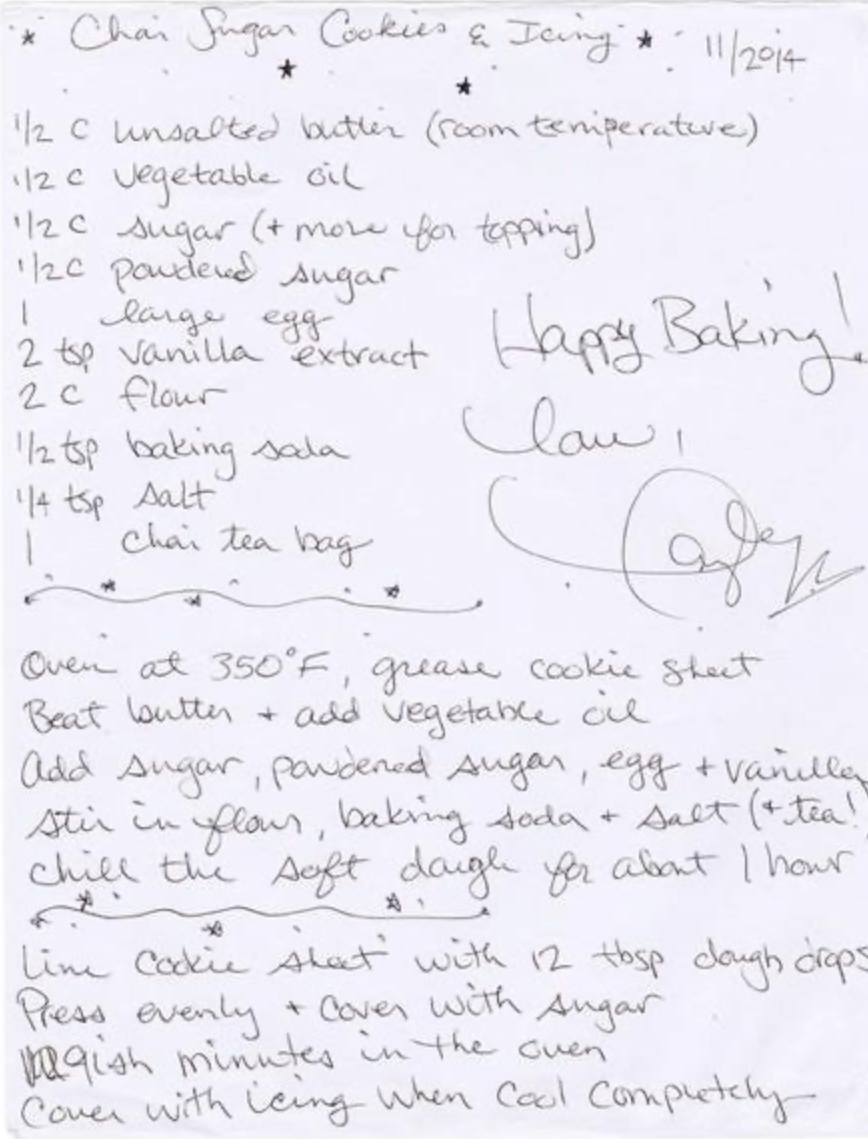 * Chai Sugar Cookies & Icing * 11/2014
1/2 C unsalted butter (room temperature)
1/2 C vegetable oil
1/2 C sugar (+ more for topping)
1/2 C powdered sugar
1 large egg
2 tsp vanilla extract
2 C flour
1/2 tsp baking soda
1/4 tsp salt
1 chai tea bag
Happy Baking!
Love,
Oven at 350°F, grease cookie sheet
Beat butter + add vegetable oil
Add sugar, powdered sugar, egg + vanilla
Stir in flour, baking soda + salt (+ tea!
Chill the soft dough for about 1 hour
Line cookie sheet with 12 tbsp dough drops
Press evenly + cover with sugar
9ish minutes in the oven
Cover with icing when cool completely